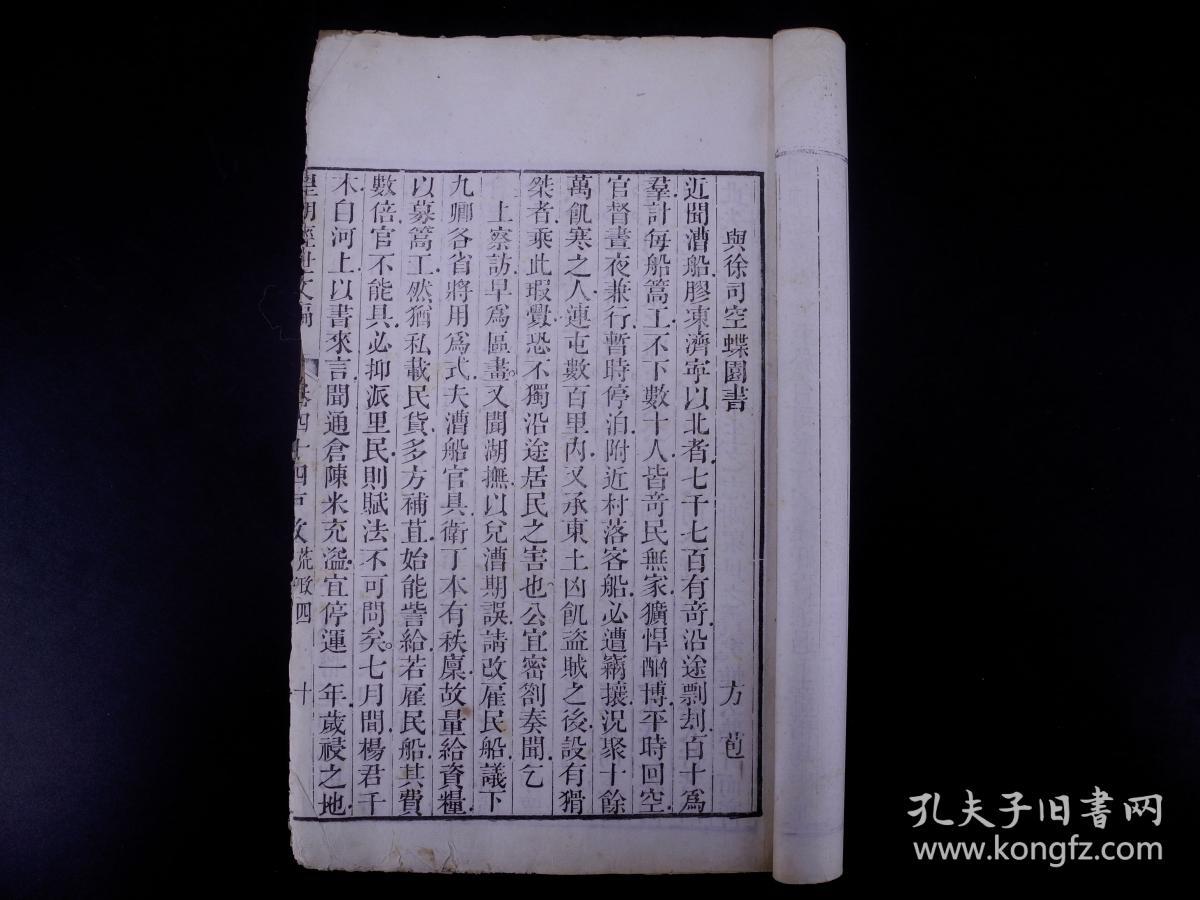 與徐司空蝶園書 方苞
近聞漕船膠凍濟寧以北者七千七百有奇沿途剽刦百十為
羣計每船篙工不下數十人皆竒民無家獷悍酗博平時回空
官督晝夜兼行暫時停泊附近村落客船必遭竊攘況聚十餘
萬飢寒之人連屯數百里內又承東土凶飢盜賊之後設有猾
桀者乘此瑕釁恐不獨沿途居民之害也公宜密劄奏聞乞
上察訪早為區畫又聞湖撫以兌漕期誤請改雇民船議下
九卿各省將用為式夫漕船官具衛丁本有秩廩故量給資糧
以募篙工然猶私載民貨多方補苴始能訾給若雇民船其費
數倍官不能具必抑派里民則賦法不可問矣七月間楊君千
木自河上以書來言聞通倉陳米充溢宜停運一年歲祲之地
皇朝經世文編 卷四十四戶政荒政四 十
孔夫子旧书网
www.kongfz.com